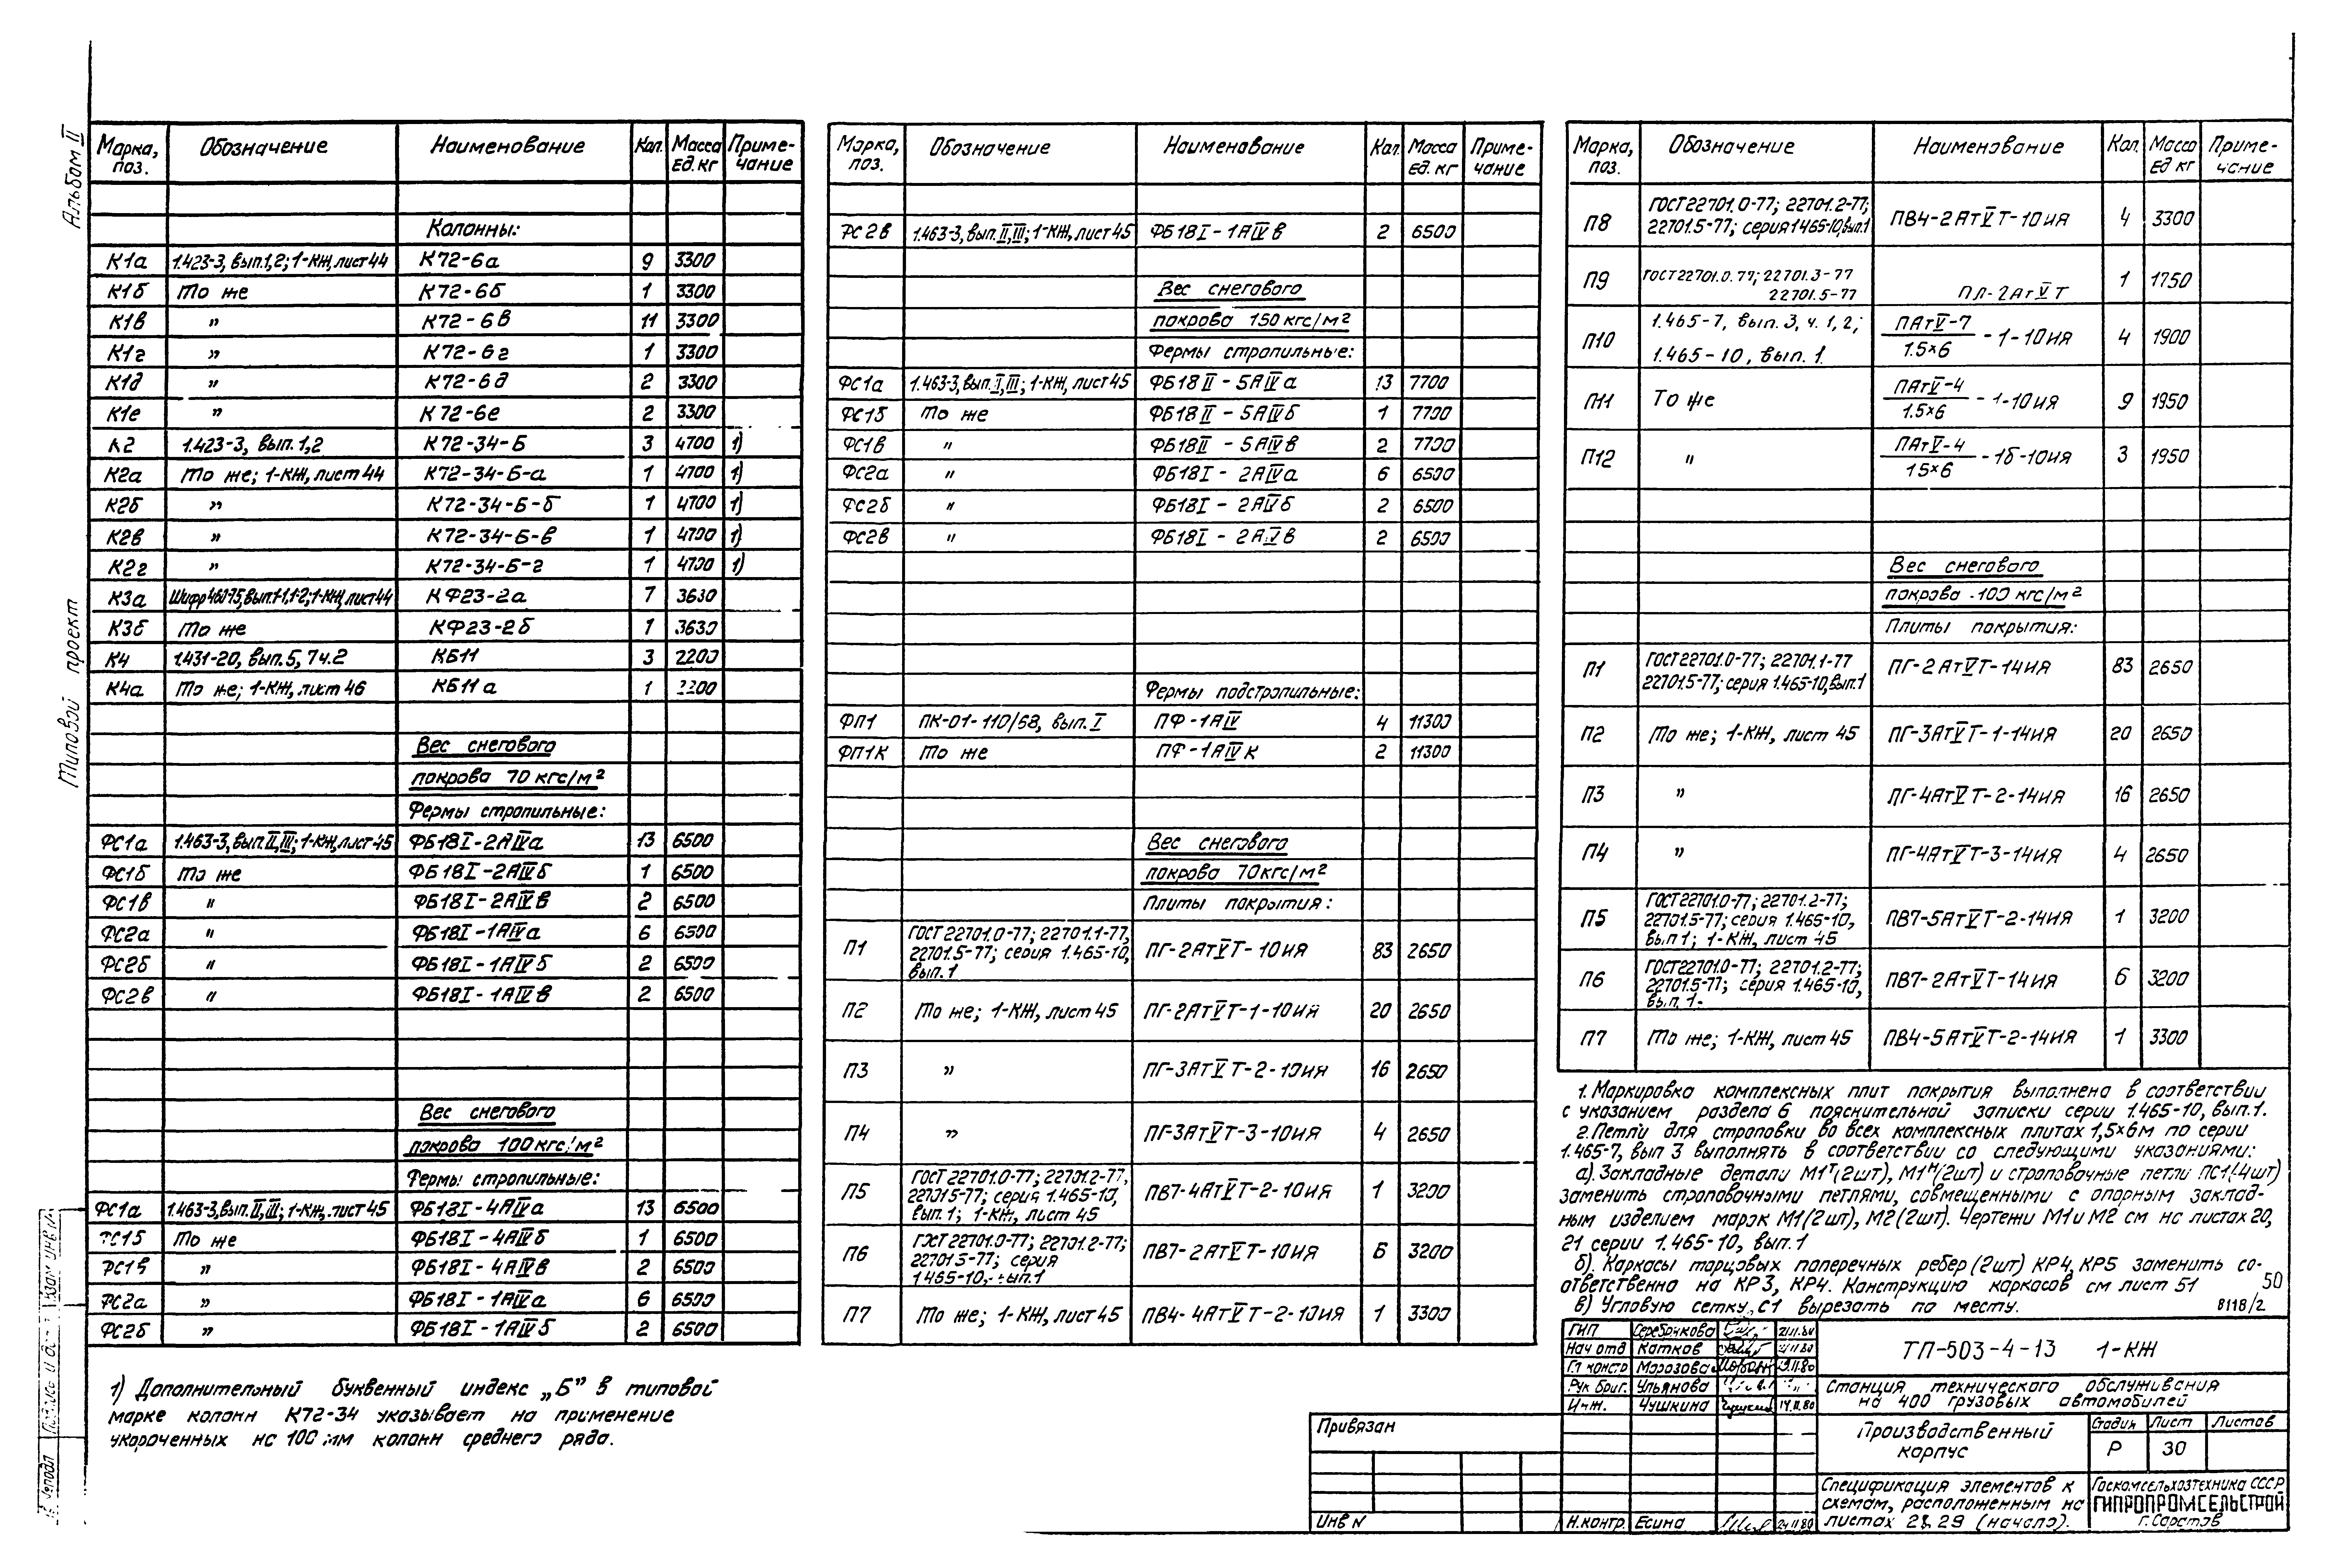 Альбом II
Типовой проект
Марка, поз. Обозначение Наименование Кол. Масса ед. кг Приме-чание
Колонны:
К1а 1.423-3, вып.1,2; 1-КЖ, лист 44 К72-6а 9 3300
К1б То же К72-6б 1 3300
К1в " К72-6в 11 3300
К1г " К72-6г 1 3300
К1д " К72-6д 2 3300
К1е " К72-6е 2 3300
К2 1.423-3, вып. 1,2 К72-34-Б 3 4700 1)
К2а То же; 1-КЖ, лист 44 К72-34-Б-а 1 4700 1)
К2б " К72-34-Б-б 1 4700 1)
К2в " К72-34-Б-в 1 4700 1)
К2г " К72-34-Б-г 1 4700 1)
К3а Шифр 460-75, вып.1-1, 1-2; 1-КЖ, лист 44 КФ23-2а 7 3630
К3б То же КФ23-2б 1 3630
К4 1.431-20, вып. 5, 7 ч.2 КБ11 3 2200
К4а То же; 1-КЖ, лист 46 КБ11а 1 2200
Вес снегового
покрова 70 кгс/м²
Фермы стропильные:
ФС1а 1.463-3, вып. II, III; 1-КЖ, лист 45 ФБ18I-2АIVа 13 6500
ФС1б То же ФБ18I-2АIVб 1 6500
ФС1в " ФБ18I-2АIVв 2 6500
ФС2а " ФБ18I-1АIVа 6 6500
ФС2б " ФБ18I-1АIVб 2 6500
ФС2в " ФБ18I-1АIVв 2 6500
Вес снегового
покрова 100 кгс/м²
Фермы стропильные:
ФС1а 1.463-3, вып. II, III; 1-КЖ, лист 45 ФБ18I-4АIVа 13 6500
ФС1б То же ФБ18I-4АIVб 1 6500
ФС1в " ФБ18I-4АIVв 2 6500
ФС2а " ФБ18I-1АIVа 6 6500
ФС2б " ФБ18I-1АIVб 2 6500
1) Дополнительный буквенный индекс „Б" в типовой
марке колонн К72-34 указывает на применение
укороченных на 100 мм колонн среднего ряда.
Марка, поз. Обозначение Наименование Кол. Масса ед. кг Приме-чание
ФС2в 1.463-3, вып. II, III; 1-КЖ, лист 45 ФБ18I-1АIVв 2 6500
Вес снегового
покрова 150 кгс/м²
Фермы стропильные:
ФС1а 1.463-3, вып. I, III; 1-КЖ, лист 45 ФБ18II-5АIVа 13 7700
ФС1б То же ФБ18II-5АIVб 1 7700
ФС1в " ФБ18II-5АIVв 2 7700
ФС2а " ФБ18I-2АIVа 6 6500
ФС2б " ФБ18I-2АIVб 2 6500
ФС2в " ФБ18I-2АIVв 2 6500
Фермы подстропильные:
ФП1 ПК-01-110/68, вып. I ПФ-1АIV 4 11300
ФП1К То же ПФ-1АIVК 2 11300
Вес снегового
покрова 70кгс/м²
Плиты покрытия:
П1 ГОСТ 22701.0-77; 22701.1-77, 22701.5-77; серия 1.465-10, вып.1 ПГ-2АтVТ-10ИЯ 83 2650
П2 То же; 1-КЖ, лист 45 ПГ-2АтVТ-1-10ИЯ 20 2650
П3 " ПГ-3АтVТ-2-10ИЯ 16 2650
П4 " ПГ-3АтVТ-3-10ИЯ 4 2650
П5 ГОСТ 22701.0-77; 22701.2-77, 22701.5-77; серия 1.465-10, вып.1; 1-КЖ, лист 45 ПВ7-4АтVТ-2-10ИЯ 1 3200
П6 ГОСТ 22701.0-77; 22701.2-77; 22701.5-77; серия 1.465-10, вып.1 ПВ7-2АтVТ-10ИЯ 6 3200
П7 То же; 1-КЖ, лист 45 ПВ4-4АтVТ-2-10ИЯ 1 3300
Марка, поз. Обозначение Наименование Кол. Масса ед кг Приме-чание
П8 ГОСТ 22701.0-77; 22701.2-77; 22701.5-77; серия 1.465-10, вып.1 ПВ4-2АтVТ-10ИЯ 4 3300
П9 ГОСТ 22701.0.77; 22701.3-77 22701.5-77 ПЛ-2АтVТ 1 1750
П10 1.465-7, вып. 3, ч. 1, 2; 1.465-10, вып. 1 ПАтV-7/1.5×6 -1-10ИЯ 4 1900
П11 То же ПАтV-4/1.5×6 -1-10ИЯ 9 1950
П12 " ПАтV-4/1.5×6 -1б-10ИЯ 3 1950
Вес снегового
покрова 100 кгс/м²
Плиты покрытия:
П1 ГОСТ 22701.0-77; 22701.1-77 22701.5-77; серия 1.465-10, вып.1 ПГ-2АтVТ-14ИЯ 83 2650
П2 То же; 1-КЖ, лист 45 ПГ-3АтVТ-1-14ИЯ 20 2650
П3 " ПГ-4АтVТ-2-14ИЯ 16 2650
П4 " ПГ-4АтVТ-3-14ИЯ 4 2650
П5 ГОСТ 22701.0-77; 22701.2-77; 22701.5-77; серия 1.465-10, вып 1; 1-КЖ, лист 45 ПВ7-5АтVТ-2-14ИЯ 1 3200
П6 ГОСТ 22701.0-77; 22701.2-77; 22701.5-77; серия 1.465-10, вып. 1. ПВ7-2АтVТ-14ИЯ 6 3200
П7 То же; 1-КЖ, лист 45 ПВ4-5АтVТ-2-14ИЯ 1 3300
1. Маркировка комплексных плит покрытия выполнена в соответствии
с указанием раздела 6 пояснительной записки серии 1.465-10, вып.1.
2. Петли для строповки во всех комплексных плитах 1,5×6м по серии
1.465-7, вып 3 выполнять в соответствии со следующими указаниями:
а). Закладные детали М1т (2шт), М1н (2шт) и строповочные петли ПС1 (4шт)
заменить строповочными петлями, совмещенными с опорным заклад-
ным изделием марок М1 (2шт), М2 (2шт). Чертежи М1 и М2 см на листах 20,
21 серии 1.465-10, вып.1
б). Каркасы торцовых поперечных ребер (2шт) КР4, КР5 заменить со-
ответственно на КР3, КР4. Конструкцию каркасов см лист 51
в) Угловую сетку С1 вырезать по месту.
50
8118/2
ГИП Серебрякова 21.11.80
Нач отд Катков 21.11.80
Гл констр Морозова
Рук бриг. Ульянова
Инж. Чушкина 14.11.80
Н.контр. Есина 24.11.80
ТП-503-4-13 1-КЖ
Станция технического обслуживания
на 400 грузовых автомобилей
Производственный
корпус
Стадия Лист Листов
Р 30
Спецификация элементов к
схемам, расположенным на
листах 28, 29 (начало).
Госкомсельхозтехника СССР
ГИПРОПРОМСЕЛЬСТРОЙ
г. Саратов
Привязан
Инв N